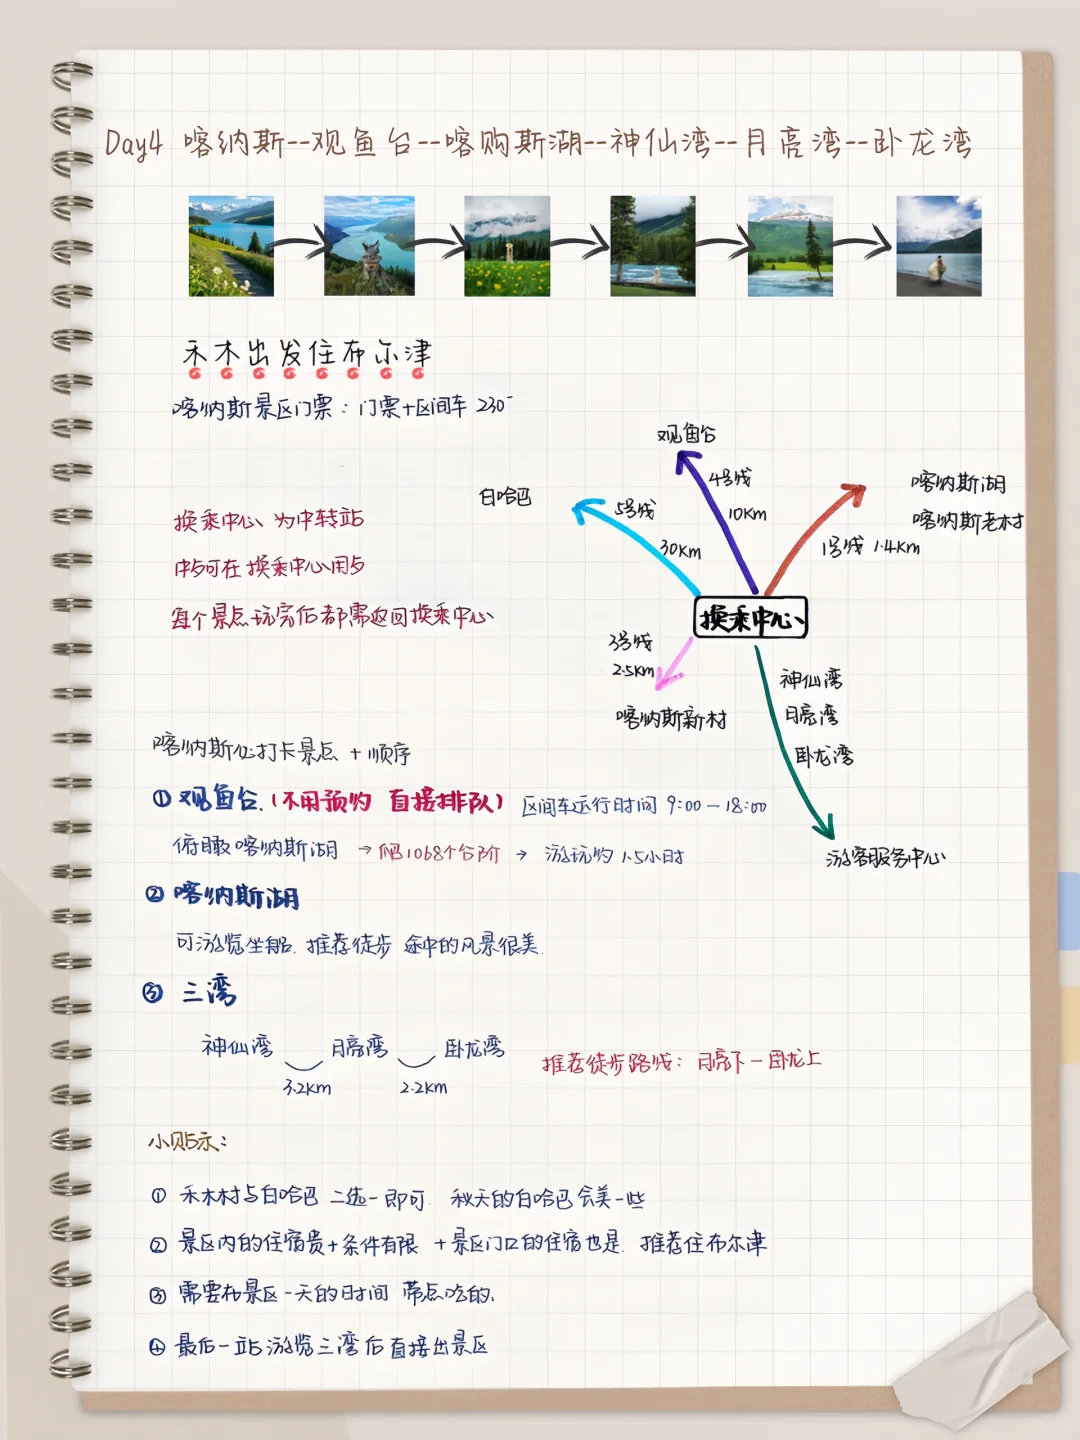 Day4 喀纳斯--观鱼台--喀购斯湖--神仙湾--月亮湾--卧龙湾
禾木出发住布尔津
喀纳斯景区门票：门票+区间车 230-
换乘中心 为中转站
中午可在 换乘中心用午
每个景点玩完后都需返回换乘中心
观鱼台
4号线
10Km
白哈巴
5号线
30Km
喀纳斯湖
喀纳斯老村
1号线 1.4Km
换乘中心
3号线
2.5Km
喀纳斯新村
神仙湾
月亮湾
卧龙湾
游客服务中心
喀纳斯必打卡景点 +顺序
① 观鱼台.(不用预约 直接排队) 区间车运行时间 9:00-18:00
俯瞰喀纳斯湖 → 爬1068个台阶 → 游玩约 1.5小时
② 喀纳斯湖
可游览坐船. 推荐徒步 途中的风景很美.
③ 三湾
神仙湾 月亮湾 卧龙湾
3.2Km 2.2Km
推荐徒步路线: 月亮下-卧龙上
小贴示:
① 禾木村与白哈巴 二选一即可. 秋天的白哈巴会美一些
② 景区内的住宿贵+条件有限 +景区门口的住宿也是. 推荐住布尔津
③ 需要在景区一天的时间 带点吃的.
④ 最后一站游览三湾后直接出景区